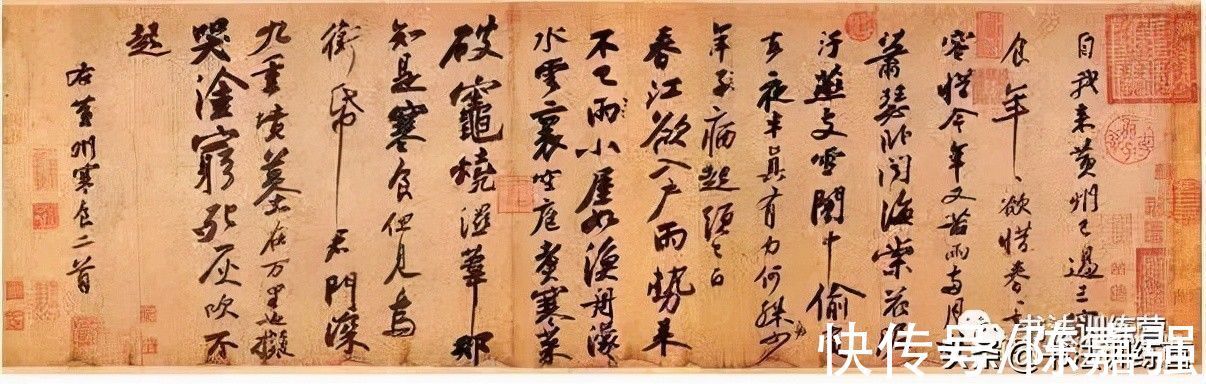 自我来黄州已過三寒
食年、欲惜春、去
容惜今年又苦雨兩月
蕭瑟卧聞海棠花泥
汙燕支雪闇中偷
去夜半真有力何殊少
年子病起頭已白
春江欲入户雨勢来
不已雨小屋如漁舟濛
水雲裏空庖煮寒菜
破竈燒濕葦那
知是寒食但見烏
銜帋君門深
九重墳墓在万里也擬
哭塗窮死灰吹不
起
右黄州寒食二首
书法训练营
头条@书法训练营
快传号/陈嘉强